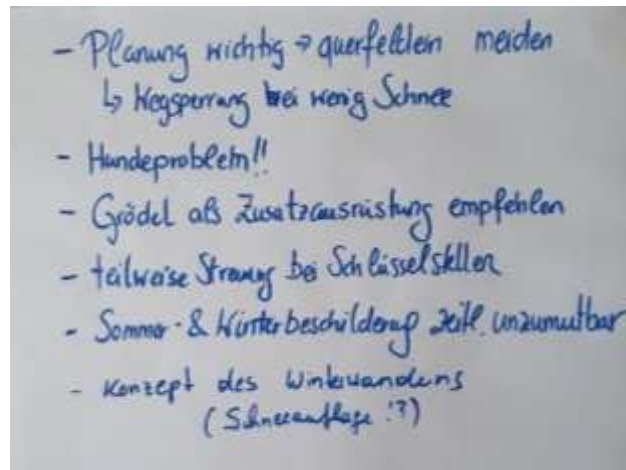 - Planung wichtig → querfeldein meiden
↳ Wegsperrung bei wenig Schnee
- Hundeproblem!!
- Grödel als Zusatzausrüstung empfehlen
- teilweise Streuung bei Schlüsselstellen
- Sommer- & Winterbeschilderung zeitl. unzumutbar
- Konzept des Winterwanderns
(Schneeauflage !?)